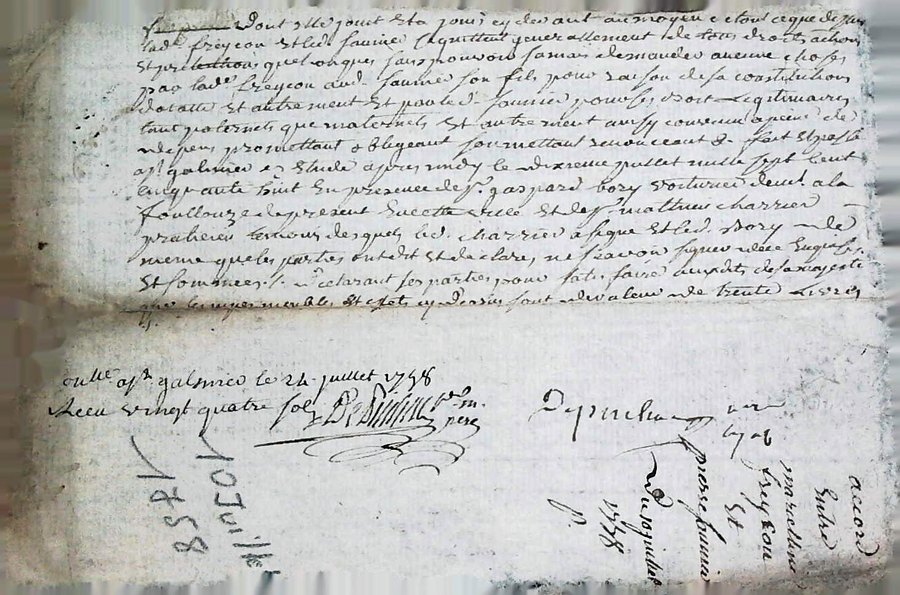 dont elle jouit et a joui cy devant au moyen
lad. freycon et led. faunier quittent generallement de tous droits actions
et pretentions quelconques sans pouvoir jamais demander aucune choses
par lad. freycon aud. faunier son fils pour raison de sa constitution
dotalle et autrement et par led. faunier pour ses droit legitimaires
tant paternels que maternels et autrement ainsy convenu a peine de
depens promettant obligeant soumettant renonceant &. fait et passé
a st galmier es etude apres midy le dixieme juillet mille sept cent
cinquante huit en presence de sr. gaspard bory voiturier demt. a la
foullouze de present en cette ville et de sr. mathieu charrier
praticien temoins desquels led. charrier a signé et led. Bory de
meme que les parties ont dit et declaré ne scavoir signer de ce enquises
et sommées declarant les parties pour satisfaire aux edits de sa majesté
que les immeubles et effets cy dessus sont de valeur de trente livres
onlle a st galmier le 24 juillet 1758
Receu vingt quatre sols
10 Juil.
1758
accord
entre
marcelline
freycon
et
pierre faunier
Du 10 juillet
1758